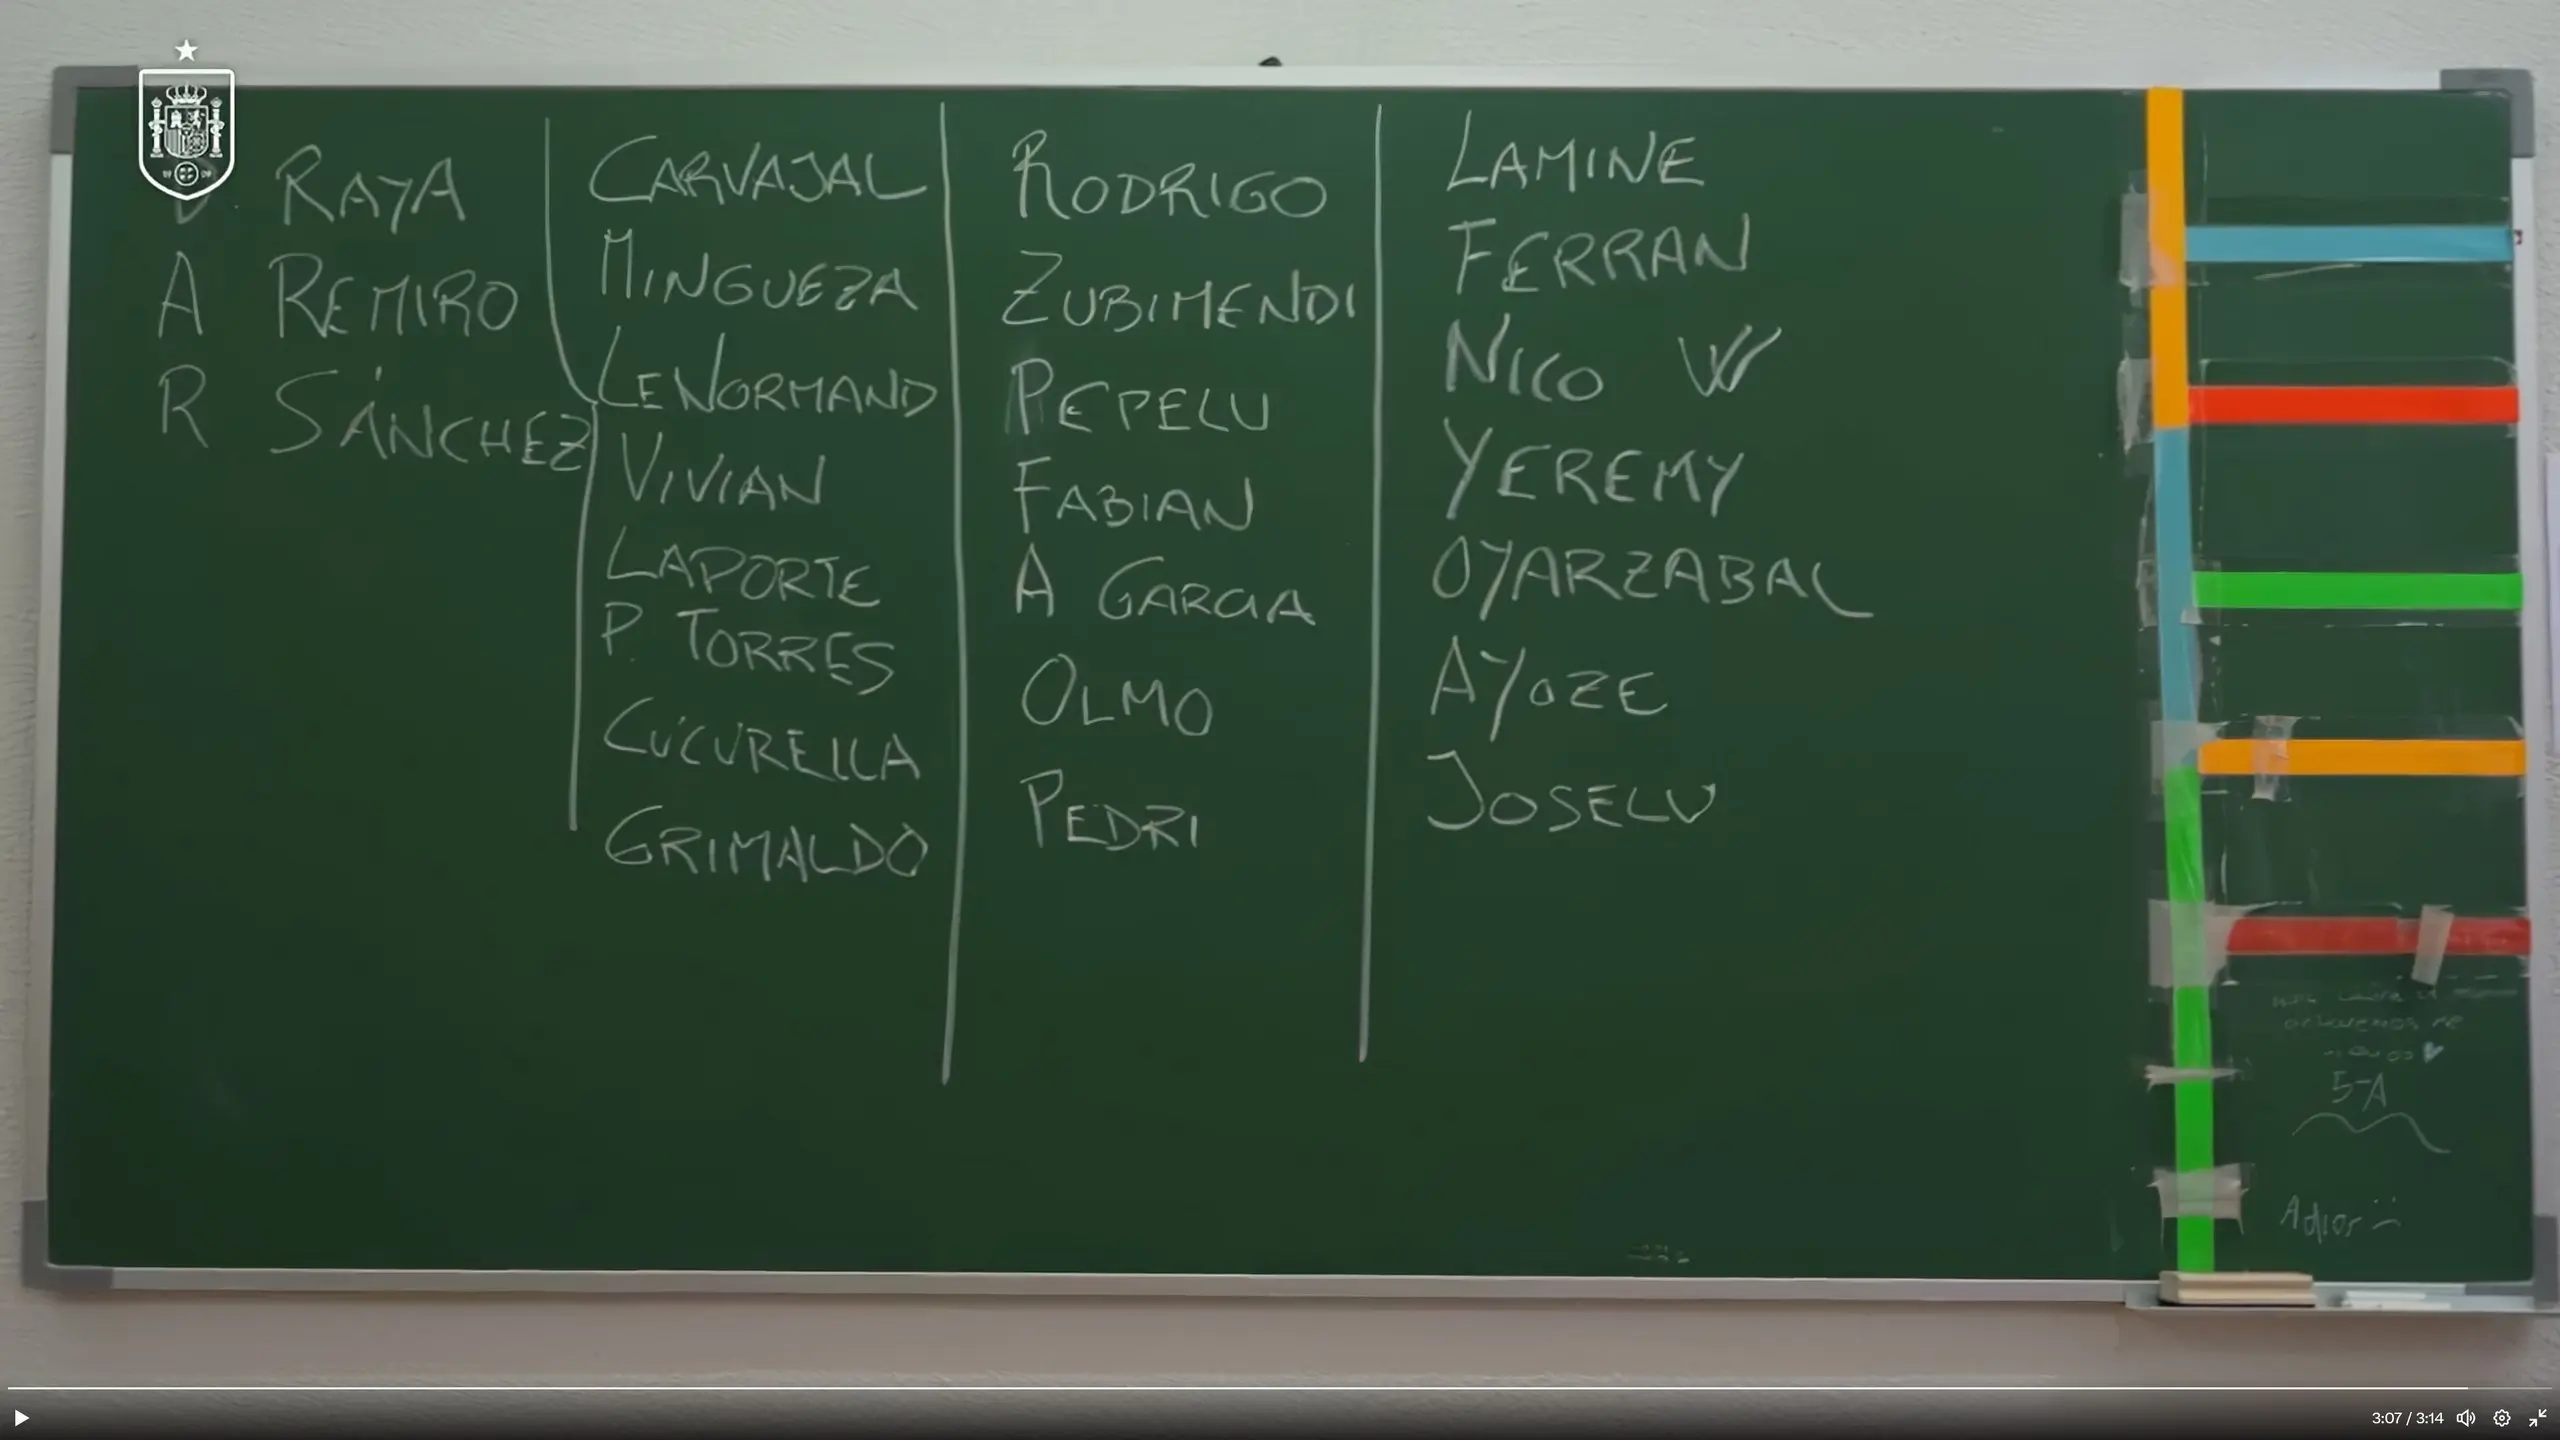 D RAYA
A REMIRO
R SÁNCHEZ
CARVAJAL
MINGUEZA
LENORMAND
VIVIAN
LAPORTE
P. TORRES
CUCURELLA
GRIMALDO
RODRIGO
ZUBIMENDI
PEPELU
FABIAN
A GARCIA
OLMO
PEDRI
LAMINE
FERRAN
NICO W
YEREMY
OYARZABAL
AYOZE
JOSELU
5-A
Adios
3:07 / 3:14